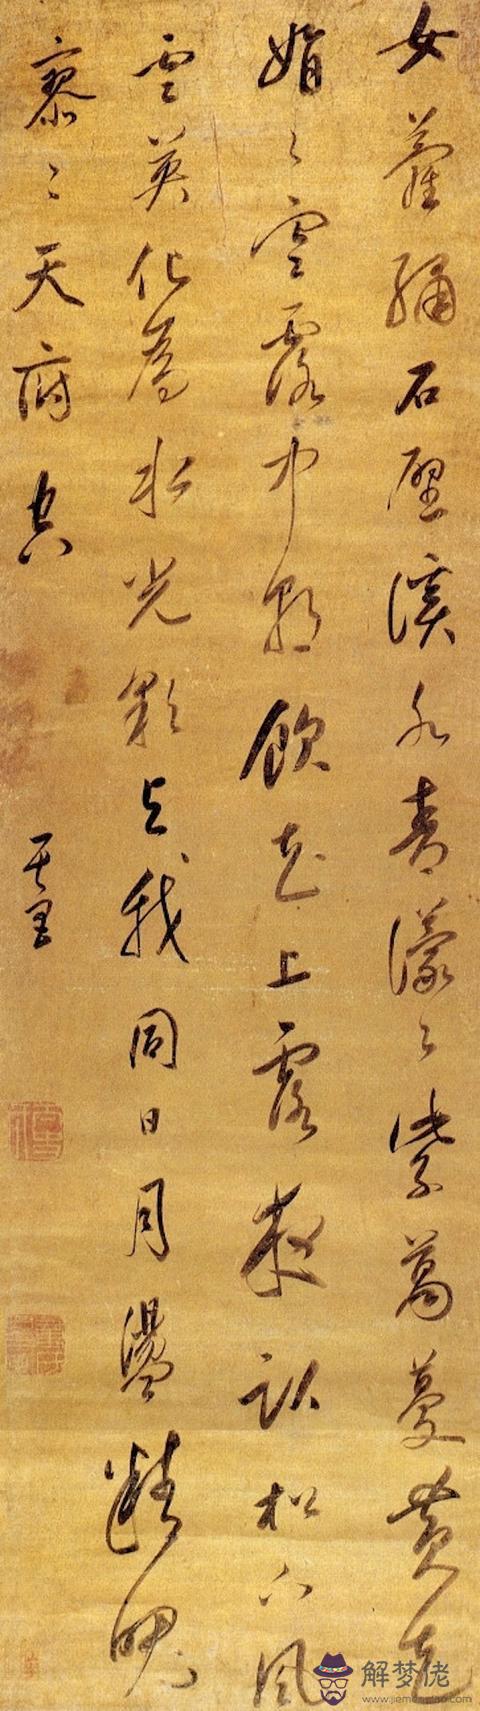 女蘿繡石壁溪水青濛〻紫葛蔓黃花
娟〻寒露中朝飲花上露夜臥松下風
雲英化為水光彩與我同日月盪精魄
寥〻天府空
其昌
解梦佬
www.jiemenglao.com